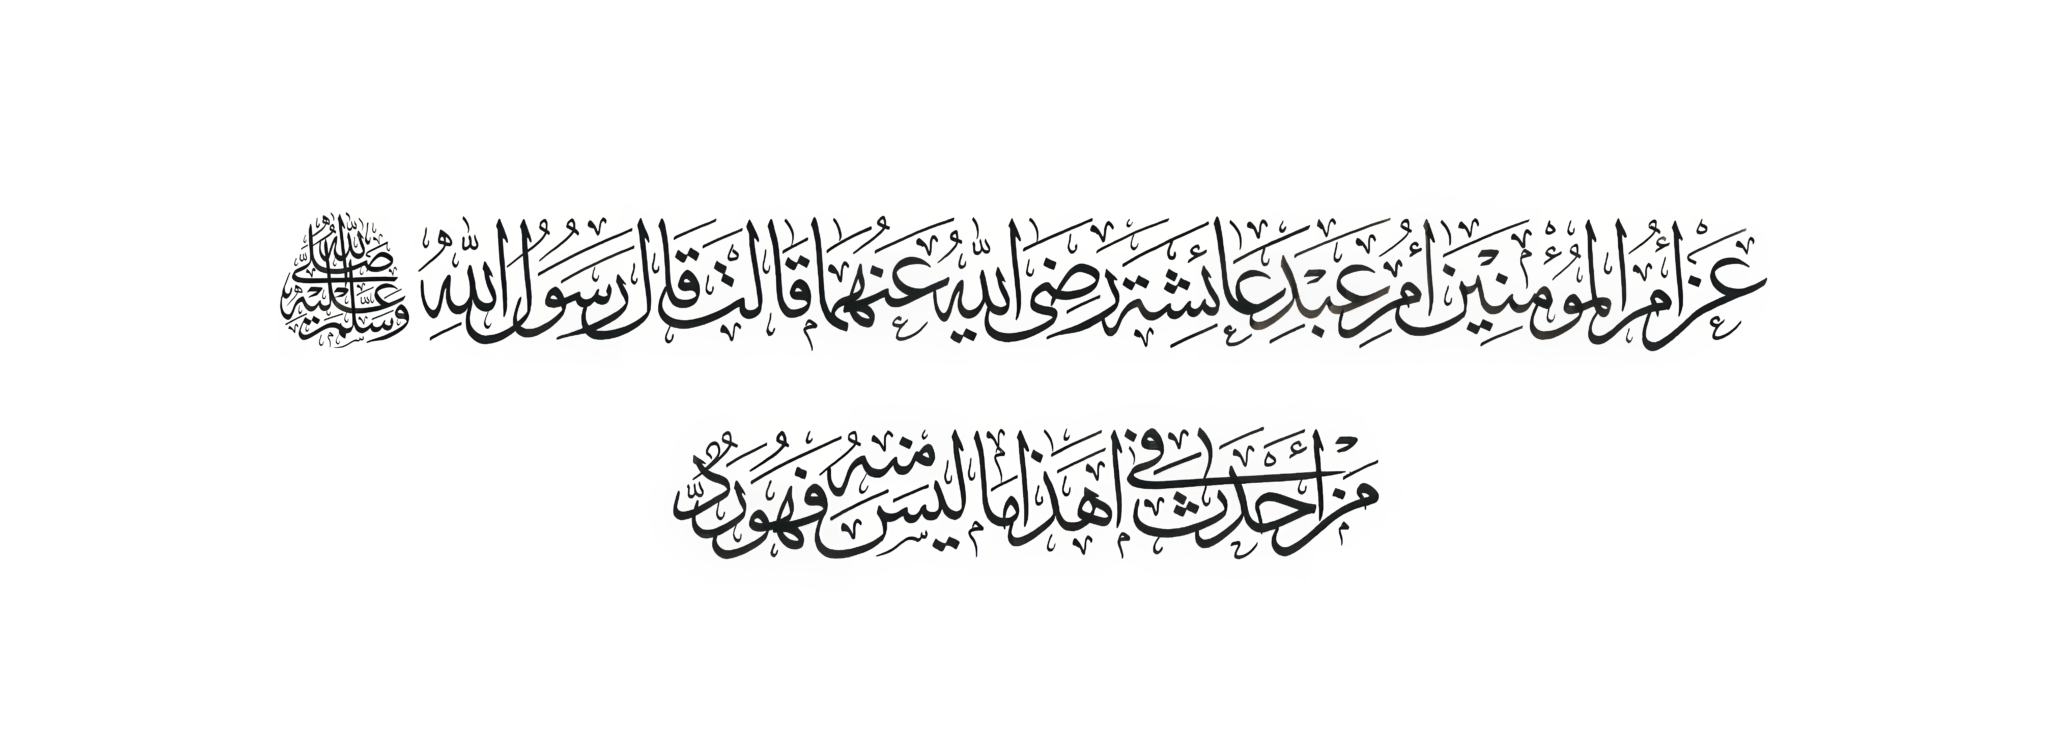 عن أم المؤمنين أم عبد عائشة رضي الله عنهما قالت قال رسول الله صلى الله عليه وسلم
من أحدث في اهذا ما ليس منه فهو رد